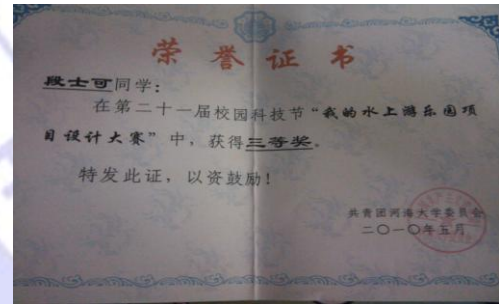 荣誉证书
段士可同学：
在第二十一届校园科技节“我的水上游乐园项
目设计大赛”中，获得三等奖。
特发此证，以资鼓励！
共青团河海大学委员会
二〇一〇年五月